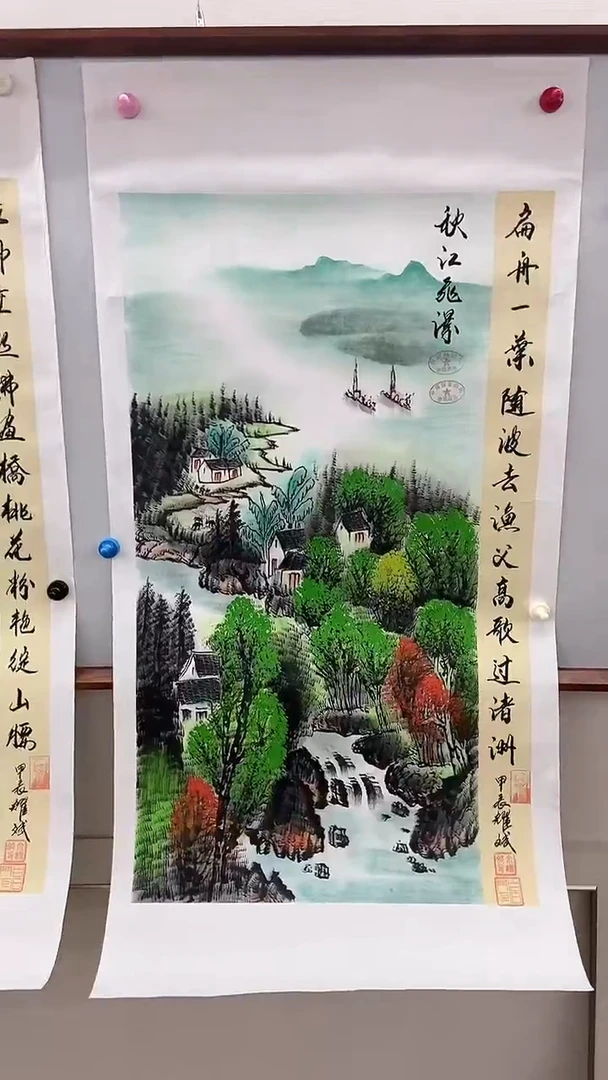 秋江飛瀑
扁舟一葉随波去漁父高歌过渚洲
甲辰耀斌
画橋桃花粉艳绽山腰
甲辰耀斌